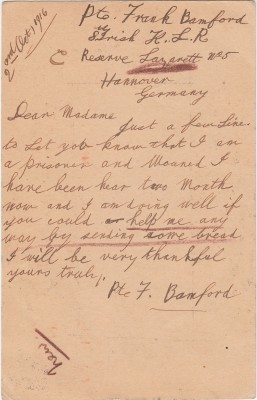 2nd Oct 1916
Pte. Frank Bamford
Irish K. L. R
C Reserve Lazarett No 5
Hannover
Germany
Dear Madame
Just a few Line
to Let you know that I am
a prisoner and Wouned I
have been hear two Month
now and I am doing well if
you could or help me any
way by sending some bread
I will be very thankful
yours truly,
Pte F. Bamford